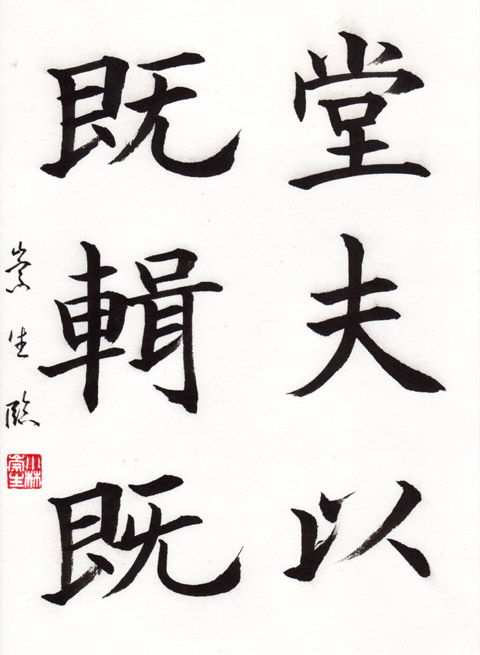 堂夫以
既輯既
崇生臨
小林崇生